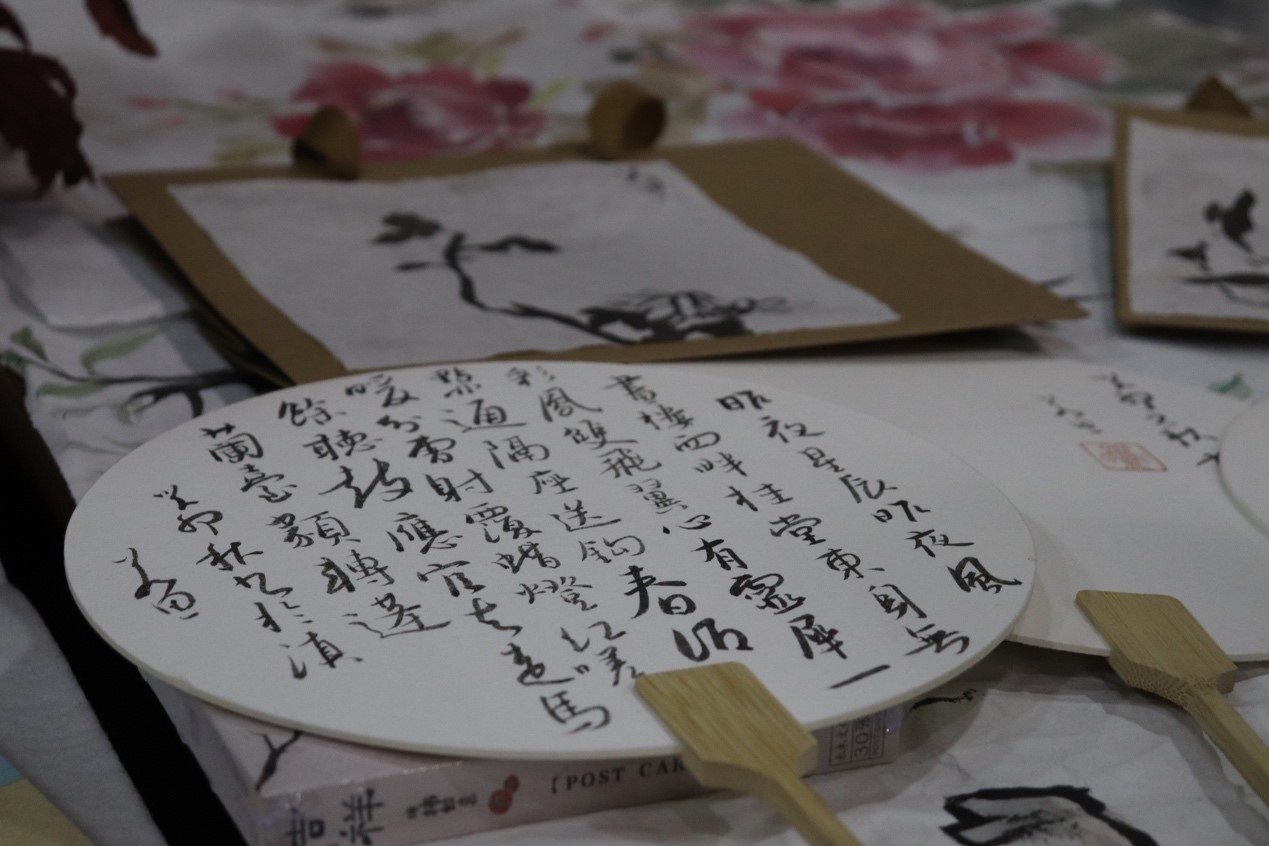 昨夜星辰昨夜風
畫樓西畔桂堂東身無
彩鳳雙飛翼心有靈犀一
點通隔座送鈎春酒
暖分曹射覆蜡燈紅嗟
餘聽鼓應官去走馬
蘭臺類轉蓬
癸卯秋書於滇
癸卯秋
吉祥
【POST CAR
30